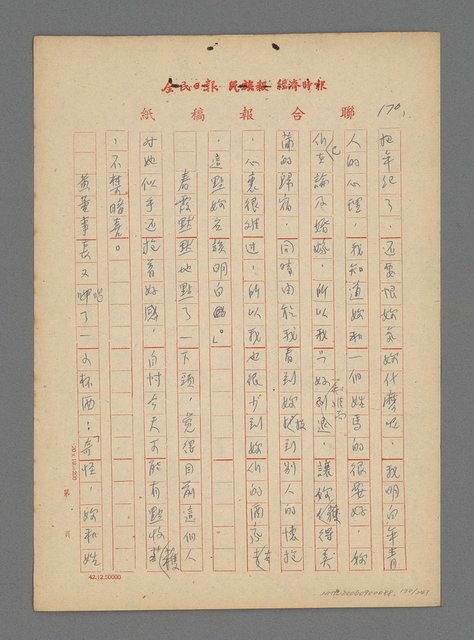 全民日報 民族報 經濟時報
聯合報稿紙
170,
把年紀了,還要恨妳氣妳什麼呢,我明白年青
人的心理,我知道妳和一個姓馬的很要好,你
們已在論及婚嫁,所以我只好知難而退,讓你們獲得美
滿的歸宿,同時由於我看到妳投到別人的懷抱
,心裏很難过,所以我也很少到妳們的酒家去
,這點妳應該明白的。」
春霞點點地點了一下頭,覺得目前這個人
对她似乎还抱着好感,自忖今天可能有點收穫
,不禁暗喜。
黃董事長又喝了一口杯酒:「奇怪,妳和姓
20×10=200
第 頁
42.12.50000
170/243